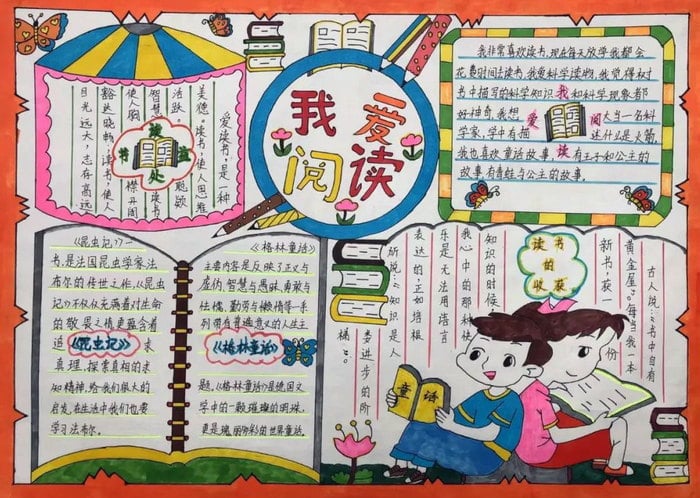 我爱
阅读
爱读书，是一种
美德。读书，使人思维
活跃，聪颖
智慧；读书
使人胸襟开阔
豁达晓畅；读书，使人
目光远大，志存高远
读
书 益
处
我非常喜欢读书,现在每天放学我都会
花费时间去读书,我爱科学读物,我觉得对
书中描写的科学知识我和科学现象都
好神奇,我想 爱 阅 大当一名科
学家,学中有描 述什么是火箭,
我也喜欢童话故事,读有王子和公主的
故事,有青蛙与公主的故事.
《昆虫记》一
书,是法国昆虫学家法
布尔的传世之作,《昆虫
记》不仅从充满着对生命
的敬畏之情更蕴含着
追《昆虫记》求
真理,探索真相的求
知精神,给我们很大的
启发,在生活中我们也要
学习法布尔.
《格林童话》
主要内容是反映了正义与
虚伪,智慧与愚昧,勇敢与
怯懦、勤劳与懒惰等一系
列带有普遍意义的人生主
《格林童话》
题,《格林童话》是德国文
学中的一颗璀璨的明珠,
更是瑰丽多彩的世界童话.
读书
的
收获
古人说:“书中自有
黄金屋”。每当我一本
新书，获一份
知识的时候
我心中的那种快
乐是无法用语言
表达的，正如培根
所说:“知识是人
类进步的阶
梯”。
童话